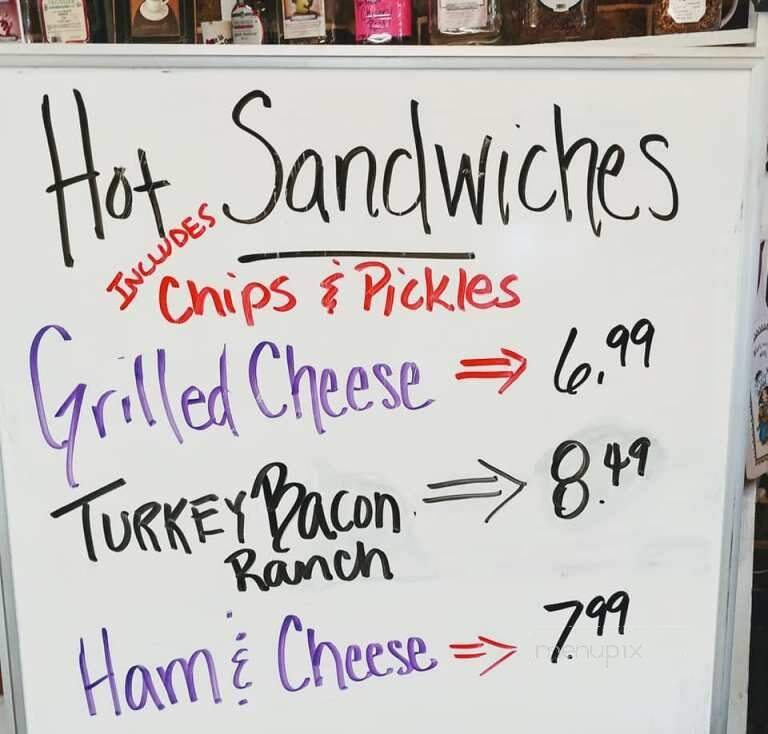 Hot Sandwiches
INCLUDES
Chips & Pickles
Grilled Cheese ⇒ 6.99
TURKEY Bacon ⇒ 8.49
Ranch
Ham & Cheese ⇒ 7.99
menupix